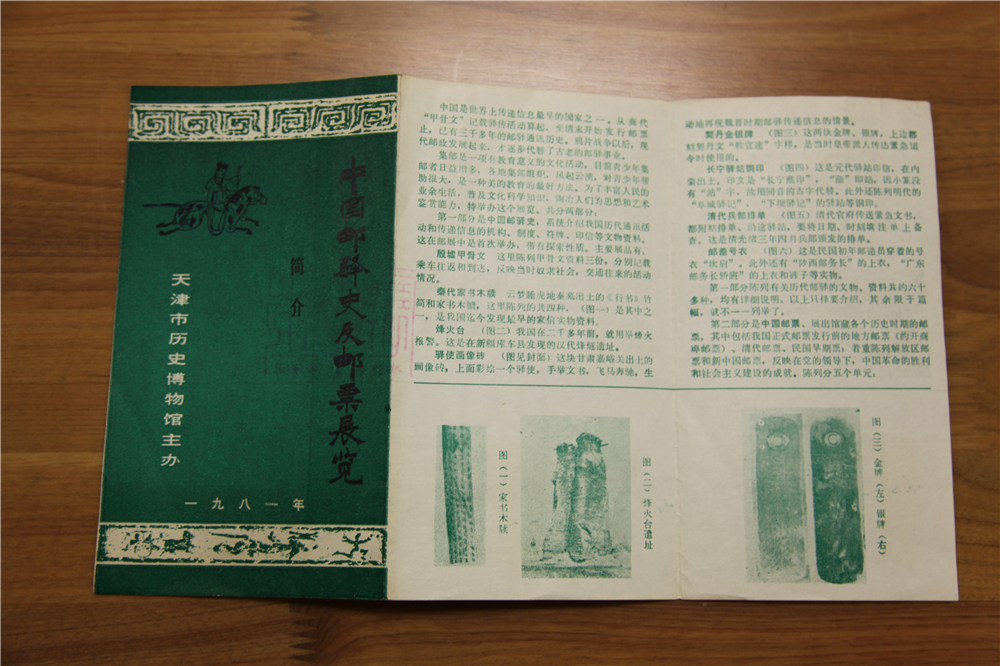 中国邮驿史及邮票展览
简介
天津市历史博物馆主办
一九八一年
中国是世界上传递信息最早的国家之一。从商代
“甲骨文”记载驿传活动算起，至清末开始发行邮票
止，已有三千多年的邮驿通讯历史。鸦片战争以后，现
代邮政发展起来，才逐步代替了古老的邮驿事业。
集邮是一项有教育意义的文化活动，目前青少年集
邮者日益增多，各地集邮组织，风起云涌，对青少年帮
助很大，是一种美的教育的最好方法。为了丰富人民的
业余生活，普及文化科学知识，陶冶人们的思想和艺术
鉴赏能力，特举办这个展览。共分两部分：
第一部分是中国邮驿史，系统介绍我国历代通讯活
动和传递信息的机构、制度、符牌、印信等文物资料。
这在邮展中是首次举办，带有探索性质。主要展品有：
殷墟甲骨文 这里陈列甲骨文资料三份，分别记载
乘车往返和到达，反映当时奴隶社会，交通往来的活动
情况。
秦代家书木牍 云梦睡虎地秦墓出土的《行书》竹
简和家书木牍，这里陈列的共四种。（图一）是其中之
一，是我国迄今发现最早的家信实物资料。
烽火台 （图二）我国在二千多年前，就用举烽火
报警。这是在新疆库车县发现的汉代烽燧遗址。
驿使画像砖 （图见封面）这块甘肃嘉峪关出土的
画像砖，上面彩绘一个驿使，手举文书，飞马奔驰，生
动地再现魏晋时期邮驿传递信息的情景。
契丹金银牌 （图三）这两块金牌、银牌，上边都
刻契丹文“敕宜速”字样，是当时皇帝派人传达紧急诏
令时使用的。
长宁驿站铜印 （图四）这是元代驿站印信，在内
蒙出土。印文是“长宁蘸印”，“蘸”即站，因小篆没
有“站”字，故用同音的古字代替。此外还陈列明代的
“阜城驿记”、“下坝驿记”的驿站等铜印。
清代兵部排单 （图五）清代官府传递紧急文书，
都附粘排单，沿途驿站，要将日期、时刻填注单上备
查。这是清光绪三年四月兵部颁发的排单。
邮差号衣 （图六）这是民国初年邮递员穿着的号
衣“坎肩”。此外还有“陕西邮务长”的上衣，“广东
邮务长轿班”的上衣和裤子等实物。
第一部分陈列有关历代邮驿的文物、资料共约六十
多种，均有详细说明。以上只择要介绍，其余限于篇
幅，就不一一列举了。
第二部分是中国邮票。展出馆藏各个历史时期的邮
票，其中包括我国正式邮票发行前的地方邮票（约开商
埠邮票）、清代邮票、民国早期票；着重陈列解放区邮
票和新中国邮票，反映在党的领导下，中国革命的胜利
和社会主义建设的成就。陈列分五个单元：
图（一）家书木牍
图（二）烽火台遗址
图（三）金牌（左）银牌（右）